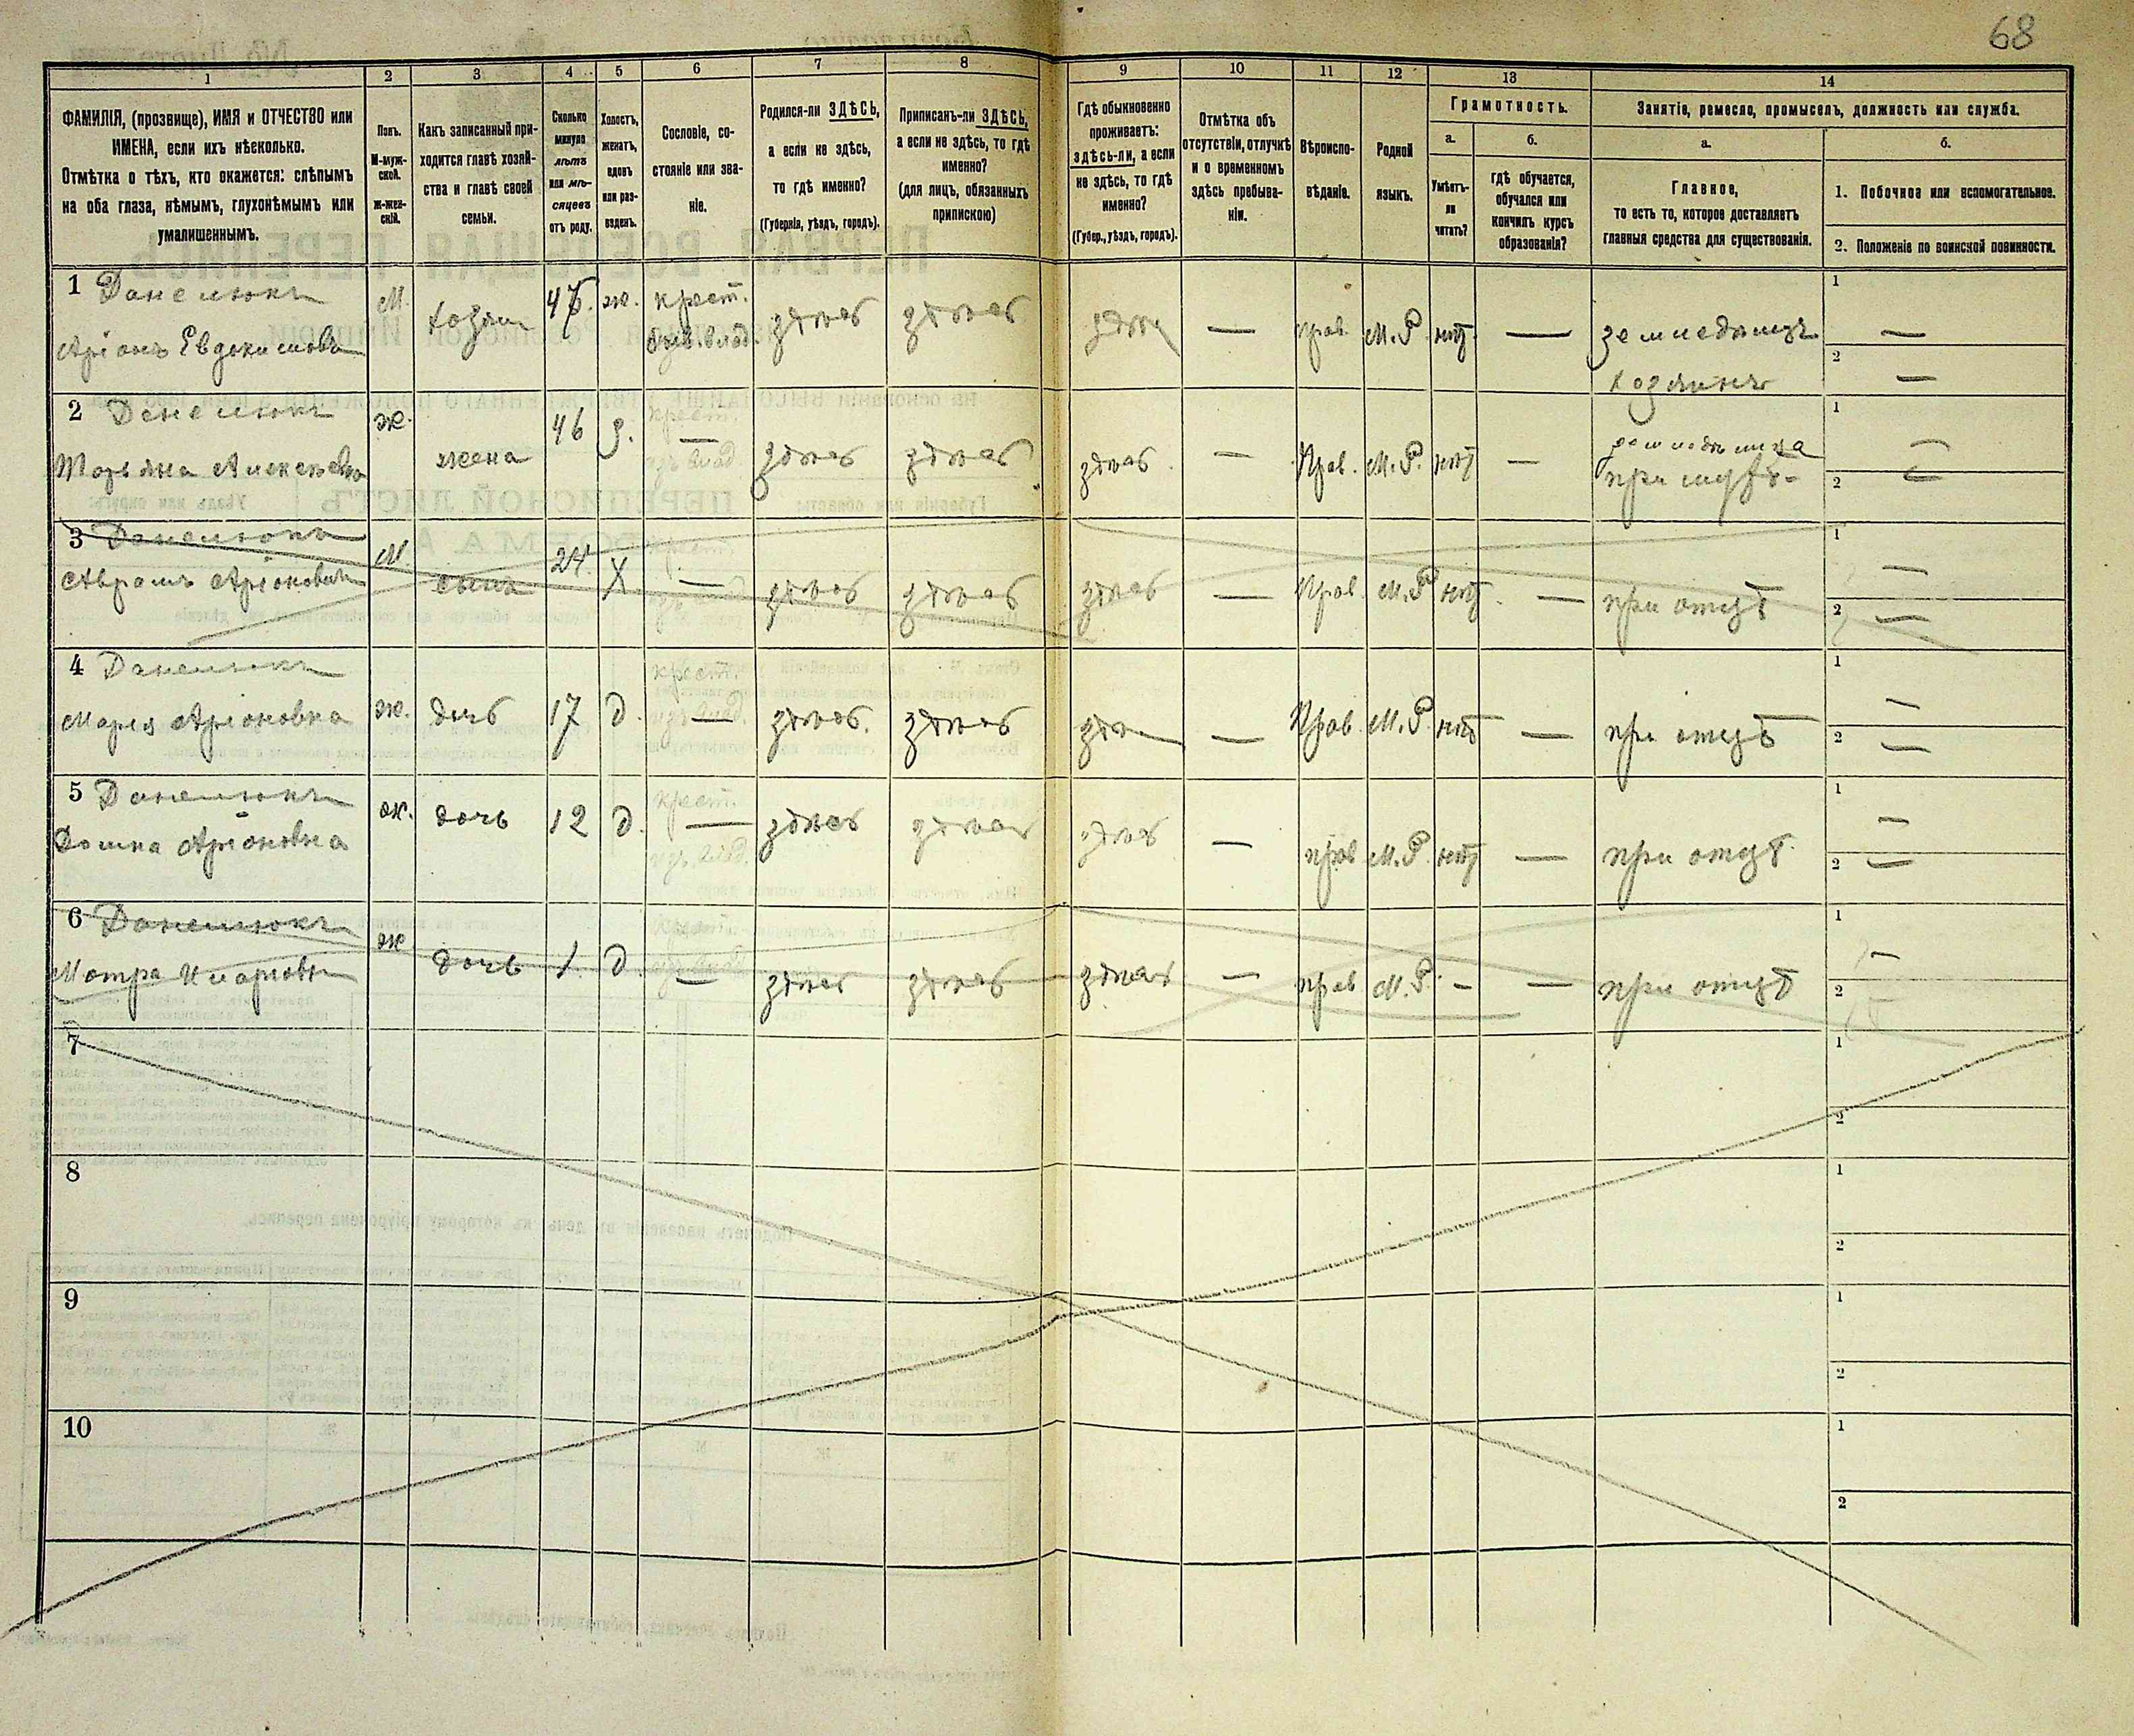 68
1 2 3 4 5 6 7 8 9 10 11 12 13 14
ФАМИЛІЯ, (прозвище), ИМЯ и ОТЧЕСТВО или
ИМЕНА, если ихъ нѣсколько.
Отмѣтка о тѣхъ, кто окажется: слѣпымъ
на оба глаза, нѣмымъ, глухонѣмымъ или
умалишеннымъ.
Полъ.
М-муж-
ской.
ж-жен-
скій.
Какъ записанный при-
ходится главѣ хозяй-
ства и главѣ своей
семьи.
Сколько
минуло
лѣтъ
или мѣ-
сяцевъ
отъ роду.
Холостъ,
женатъ,
вдовъ
или раз-
веденъ.
Сословіе, со-
стояніе или зва-
ніе.
Родился-ли ЗДѢСЬ,
а если не здѣсь,
то гдѣ именно?
(Губернія, уѣздъ, городъ).
Приписанъ-ли ЗДѢСЬ,
а если не здѣсь, то гдѣ
именно?
(для лицъ, обязанныхъ
припискою)
Гдѣ обыкновенно
проживаетъ:
здѣсь-ли, а если
не здѣсь, то гдѣ
именно?
(Губер., уѣздъ, городъ).
Отмѣтка объ
отсутствіи, отлучкѣ
и о временномъ
здѣсь пребыва-
ніи.
Вѣроиспо-
вѣданіе.
Родной
языкъ.
Грамотность.
а.
Умѣетъ-
ли
читать?
б.
гдѣ обучается,
обучался или
кончилъ курсъ
образованія?
Занятіе, ремесло, промыселъ, должность или служба.
а.
Главное,
то есть то, которое доставляетъ
главныя средства для существованія.
б.
1. Побочное или вспомогательное.
2. Положеніе по воинской повинности.
1 Данелюкъ
Аріонъ Евдокимовъ
М. 47. ж. крест. здѣсь здѣсь здѣсь — прав. М.Р. нѣт — земледѣлецъ
хозяинъ
1 —
2 —
2 Данелюкъ
Марьяна Алексѣевна
ж. жена 46 з. крест. — здѣсь здѣсь здѣсь — Прав. М.Р. нѣт —
при мужѣ
1 —
2 —
3 Данелюкъ
Аврамъ Аріоновичъ
М. сынъ 24. Х — здѣсь здѣсь здѣсь — Прав. М.Р нѣт — при отцѣ
1 —
2 —
4 Данелюкъ
Мария Аріоновна
ж. дочь 17 д. крест. — здѣсь здѣсь здѣсь — Прав. М.Р нѣт — при отцѣ
1 —
2 —
5 Данелюкъ
Домна Аріоновна
ж. дочь 12 д. крест. — здѣсь здѣсь здѣсь — прав М.Р. нѣт — при отцѣ
1 —
2 —
6 Данелюкъ
Мотра
ж дочь 1. д. — здѣсь здѣсь здѣсь — прав М.Р. — — при отцѣ
1 —
2 —
7 1
2
8 1
2
9 1
2
10 1
2